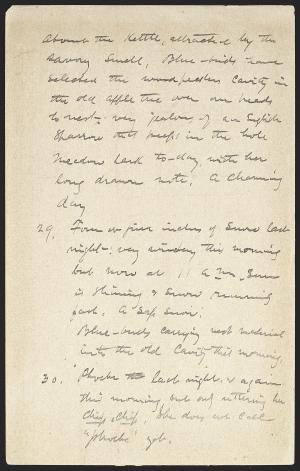 about the kettle, attracted by the
savory smell, Blue-birds have
selected the woodpeckers cavity in
the old apple tree over our heads
to nest. very jealous of an English
Sparrow that peeps in the hole
Meadow lark to-day, with her
long drawn note. A charming
day
29. Four or five inches of snow last
night; very windy this morning
but now at 11 A.M., Sun
is shining & Snow running
fast. A Sap Snow.
Blue-birds carrying nest material
into the old Cavity this morning.
30. Phoebe last night, & again
this morning but not uttering her
Chip, Chip, She does not call
"phoebe" yet.